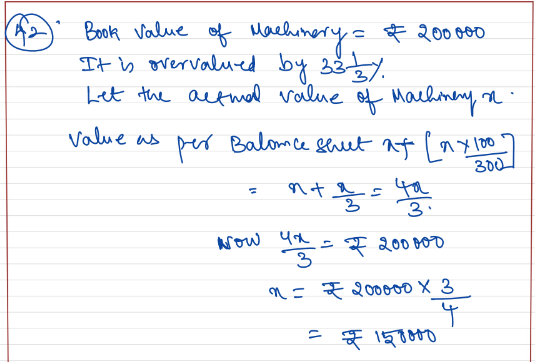 42
Book value of Machinery = ₹ 200000
It is overvalued by 33 1/3 %.
Let the actual value of Machinery x.
Value as per Balance sheet x + [x × 100/300]
= x + x/3 = 4x/3.
Now 4x/3 = ₹ 200000
x = ₹ 200000 × 3/4
= ₹ 150000